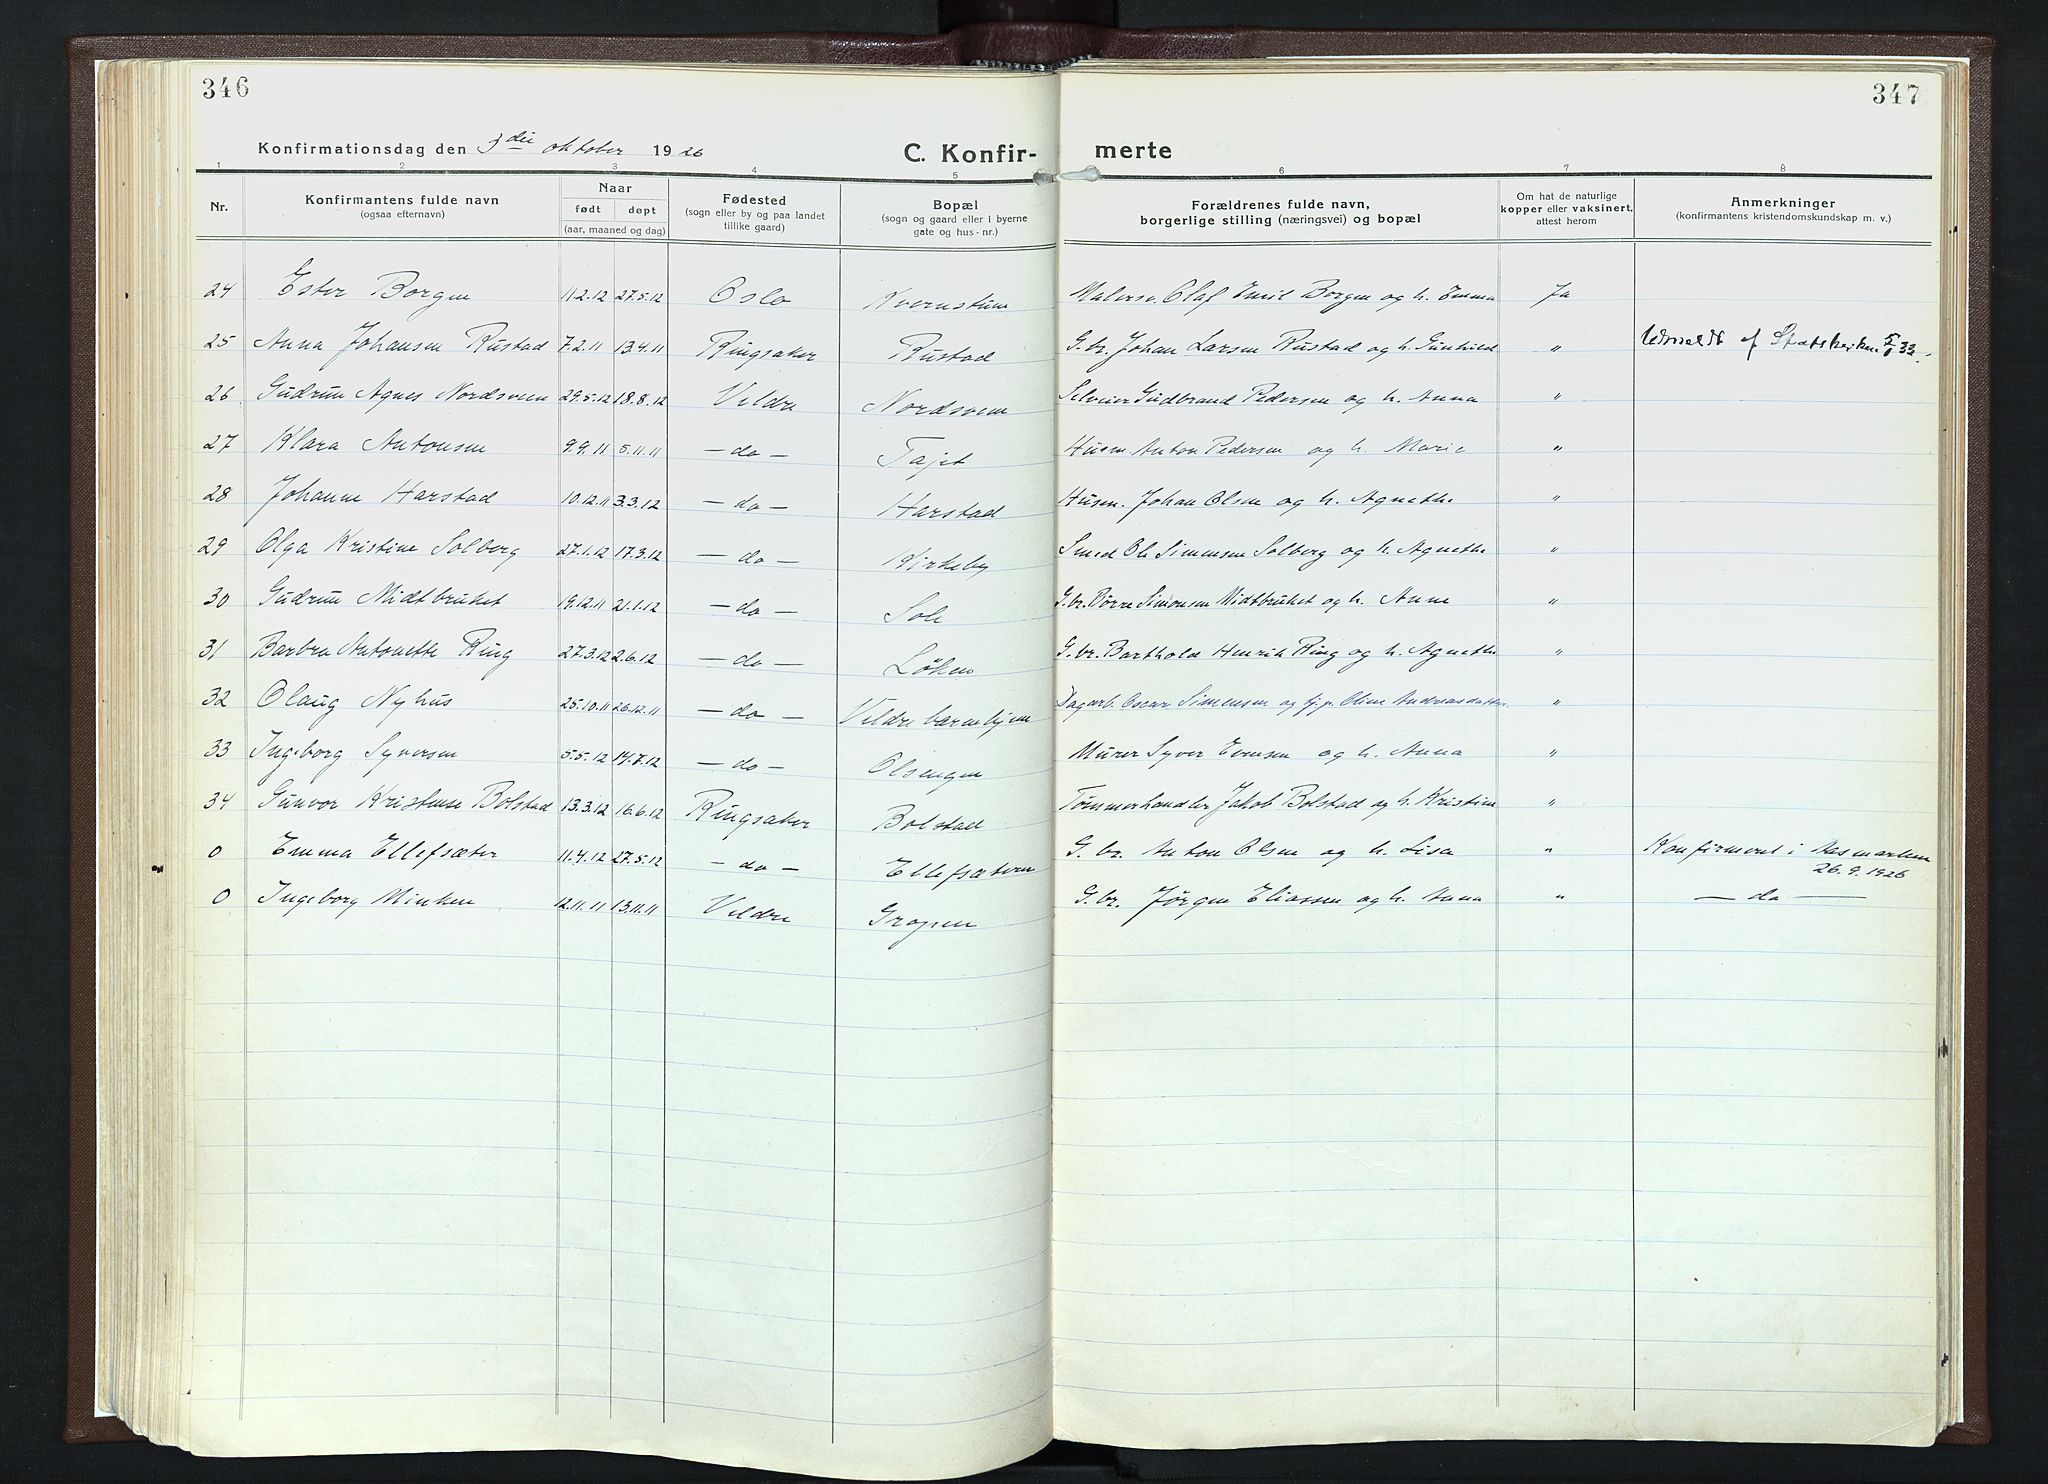 346
347
Konfirmationsdag den 3die oktober 1926
C. Konfir-
merte
1 2 3 4 5 6 7 8
Nr. Konfirmantens fulde navn (ogsaa efternavn) Naar født døpt (aar, maaned og dag) Fødested (sogn eller by og paa landet tillike gaard) Bopæl (sogn og gaard eller i byerne gate og hus-nr.) Forældrenes fulde navn, borgerlige stilling (næringsvei) og bopæl Om hat de naturlige kopper eller vaksinert, attest herom Anmerkninger (konfirmantens kristendomskundskap m. v.)
24 Ester Borgen 11.2.12 27.5.12 Oslo Kvernstuen Malerse. Olaf Emil Borgen og h. Emma Ja
25 Anna Johansen Rustad 7.2.11 13.4.11 Ringsaker Rustad G.br. Johan Larsen Rustad og h. Gunhild " Utmeldt af Statskirken 5/1 33.
26 Gudrun Agnes Nordsveen 29.5.12 18.8.12 Veldre Nordsveen Selveier Gudbrand Pedersen og h. Anna "
27 Klara Antonsen 9.9.11 5.11.11 — do — Tajet Husm. Anton Pedersen og h. Marie "
28 Johanne Harstad 10.12.11 3.3.12 — do — Harstad Husm. Johan Olsen og h. Agnethe "
29 Olga Kristine Solberg 27.1.12 17.3.12 — do — Kirkeby Smed Ole Simensen Solberg og h. Agnethe "
30 Gudrun Midtbruket 19.12.11 21.1.12 — do — Sole G.br. Børre Simonsen Midtbruket og h. Anne "
31 Barbra Antonette Ring 27.3.12 2.6.12 — do — Løken G.br. Barthold Henrik Ring og h. Agnethe "
32 Olaug Nyhus 25.10.11 26.12.11 — do — Veldre barnehjem Dagarb. Oscar Simensen og tj.p. Oline Andreasdatter "
33 Ingeborg Syversen 5.5.12 14.7.12 — do — Olsengen Murer Syver Evensen og h. Anna "
34 Gunvor Kristense Bolstad 13.3.12 16.6.12 Ringsaker Bolstad Tømmerhandler Jakob Bolstad og h. Kristine "
0 Emma Ellefsæter 11.4.12 27.5.12 — do — Ellefsæteren G.br. Anton Olsen og h. Lisa " Konfirmeret i Aasmarken
26.9.1926
0 Ingeborg Minken 12.11.11 13.11.11 Veldre Gropen G.br. Jørgen Eliassen og h. Anna " — do —